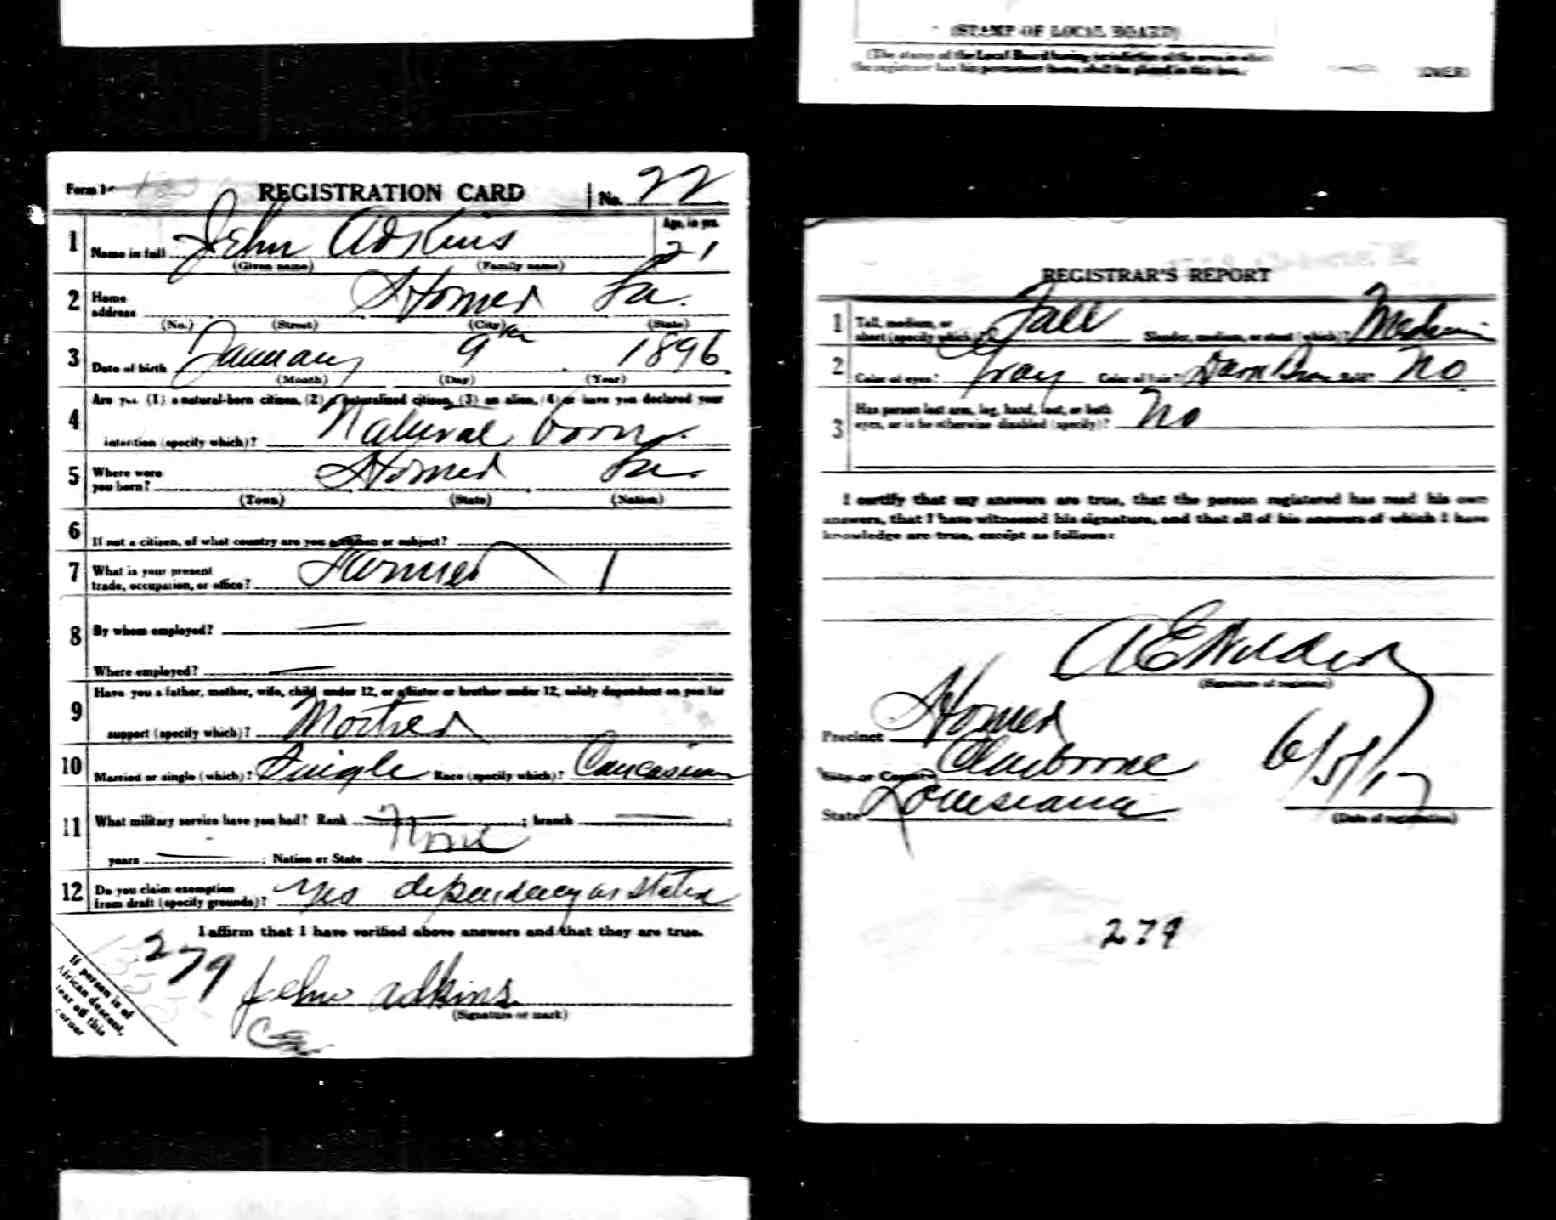 (STAMP OF LOCAL BOARD)
(The stamp of the Local Board having jurisdiction of the area in which
the registrant has his permanent home shall be placed in this box.)
(OVER)
Form 1
REGISTRATION CARD No. 22
1 Name in full John Adkins Age, in yrs. 21
(Given name) (Family name)
2 Home address Homer La.
(No.) (Street) (City) (State)
3 Date of birth January 9th 1896
(Month) (Day) (Year)
4 Are you (1) a natural-born citizen, (2) a naturalized citizen, (3) an alien, (4) or have you declared your
intention (specify which)? Natural born
5 Where were you born? Homer La.
(Town) (State) (Nation)
6 If not a citizen, of what country are you a citizen or subject?
7 What is your present trade, occupation, or office? Farmer 1
8 By whom employed? —
Where employed? —
9 Have you a father, mother, wife, child under 12, or a sister or brother under 12, solely dependent on you for
support (specify which)? Mother
10 Married or single (which)? Single Race (specify which)? Caucasian
11 What military service have you had? Rank — ; branch — ;
None
years — ; Nation or State
12 Do you claim exemption from draft (specify grounds)? Yes dependency as stated
I affirm that I have verified above answers and that they are true.
279
John Adkins
(Signature or mark)
If person is of
African descent,
tear off this
corner
REGISTRAR'S REPORT
1 Tall, medium, or short (specify which)? Tall Slender, medium, or stout (which)? Medium
2 Color of eyes? Gray Color of hair? Dark Brown Bald? No
3 Has person lost arm, leg, hand, foot, or both
eyes, or is he otherwise disabled (specify)? No
I certify that my answers are true, that the person registered has read his own
answers, that I have witnessed his signature, and that all of his answers of which I have
knowledge are true, except as follows:
A E Wilder
(Signature of registrar)
Precinct Homer
City or County Claiborne
State Louisiana
6/5/17
(Date of registration)
279